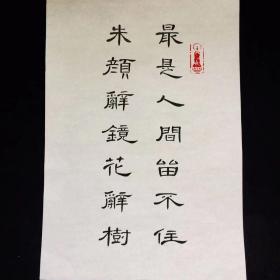 最是人間畱不住
朱顔辭鏡花辭樹